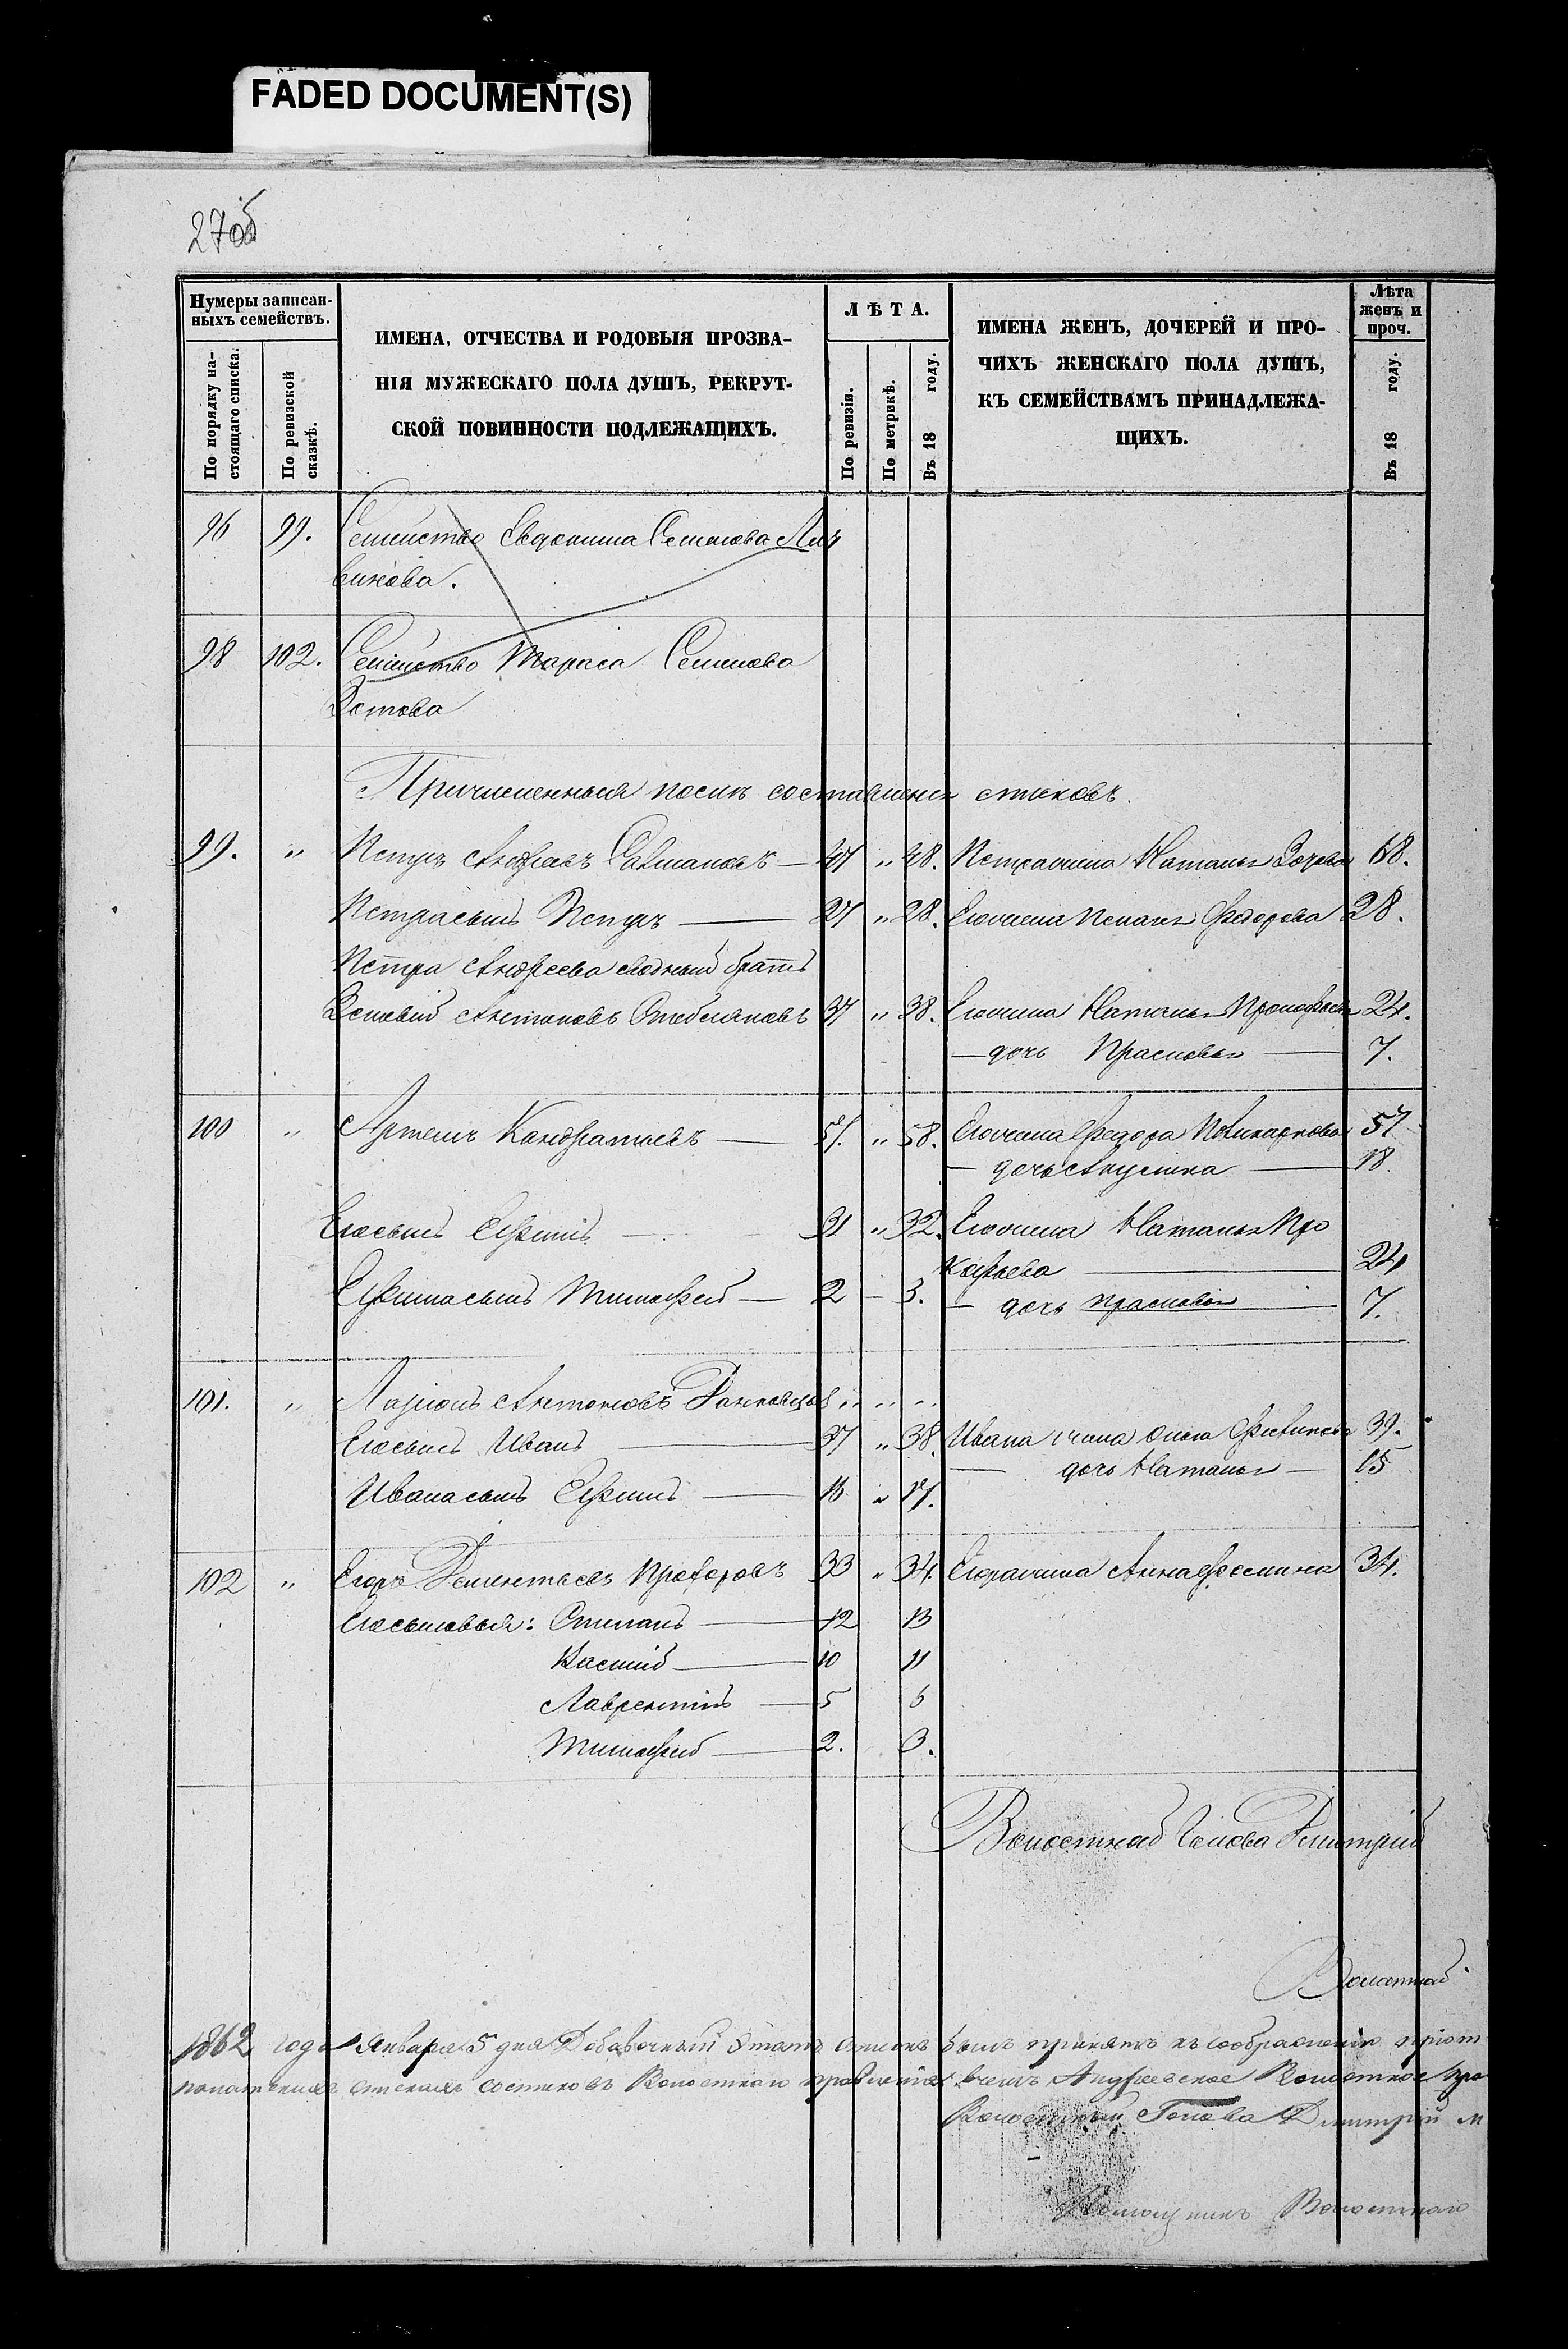 FADED DOCUMENT(S)
27об
Нумеры записан-
ныхъ семействъ.
По порядку на-
стоящаго списка.
По ревизской
сказкѣ.
ИМЕНА, ОТЧЕСТВА И РОДОВЫЯ ПРОЗВА-
НІЯ МУЖЕСКАГО ПОЛА ДУШЪ, РЕКРУТ-
СКОЙ ПОВИННОСТИ ПОДЛЕЖАЩИХЪ.
ЛѢТА.
По ревизіи.
По метрикѣ.
Въ 18 году.
ИМЕНА ЖЕНЪ, ДОЧЕРЕЙ И ПРО-
ЧИХЪ ЖЕНСКАГО ПОЛА ДУШЪ,
КЪ СЕМЕЙСТВАМЪ ПРИНАДЛЕЖА-
ЩИХЪ.
Лѣта
женъ и
проч.
Въ 18 году.
96 99. Семейство Евдокима Семенова
98 102. Семейство Тараса Семенова
Зотова
Причисленныя послѣ составленія
99. " Петръ Андреевъ — 47 " 48. Петра жена Наталья 68.
Петра сынъ Петръ — 27 " 28. Его жена Федорова 28.
Петра Андреева сводный братъ
Антоновъ 37 " 38. Его жена Наталья 24.
— дочь Прасковья — 7.
100 " Артемъ Кондратьевъ — 57. " 58. Его жена Федора Поликарпова 57
— дочь Акулина — 18.
Его сынъ Ефимъ — 31 " 32. Его жена Наталья Про
кофьева — 24
Ефима сынъ Тимофей — 2 — 3. — дочь Прасковья — 7.
101. " Ларіонъ Антоновъ " " "
Его сынъ Иванъ — 37 " 38. Ивана жена 39.
— дочь Наталья — 15
Ивана сынъ Ефимъ — 16 " 17.
102 " Егоръ Дементьевъ Прохоровъ 33 " 34. Егора жена Анна Фомина 34.
Его сыновья: Степанъ — 12 13
Василій — 10 11
Лаврентій — 5 6
Тимофей — 2. 3.
Волостной Голова Дмитрій
Волостной
1862 года Января 5 дня Добавочный этотъ списокъ былъ принятъ къ соображенію
Волостнаго правленія въ чемъ Андреевское Волостное Пра
Волостный Голова Дмитрій М
Помощникъ Волостнаго